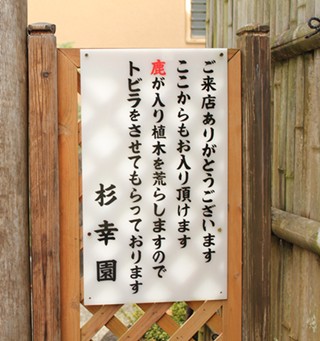 ご来店ありがとうございます
ここからもお入り頂けます
鹿が入り植木を荒らしますので
トビラをさせてもらっております
杉幸園